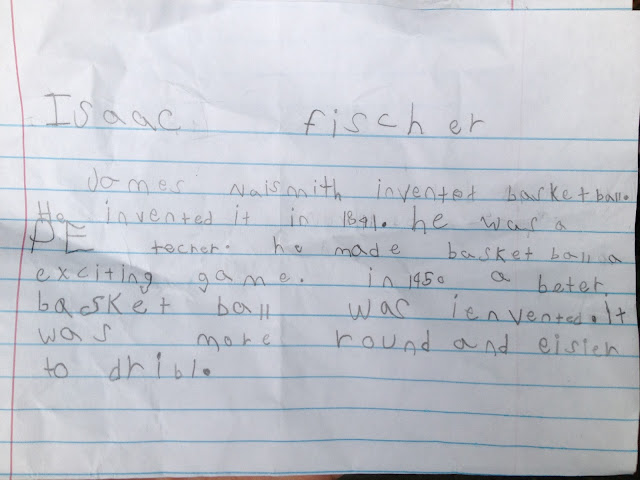 Isaac fischer
James Naismith invented basketball.
He invented it in 1891. he was a
PE techer. he made basket ball a
exciting game. in 1950 a beter
basket ball was ienvented. It
was more round and eisier
to dribl.